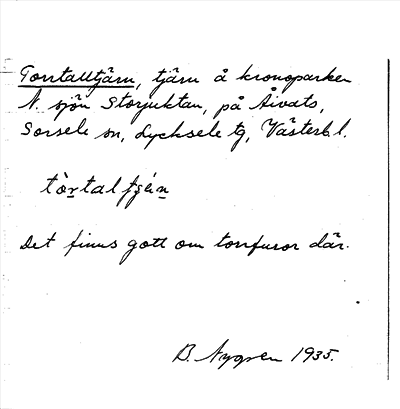 Torrtalltjärn, tjärn å kronoparken
N. sjön Storjuktan, på Åivats,
Sorsele sn, Lycksele tg, Västerb. l.
tòr̲tal ʃɕä́n̲
Det finns gott om torrfuror där.
B. Nygren 1935.